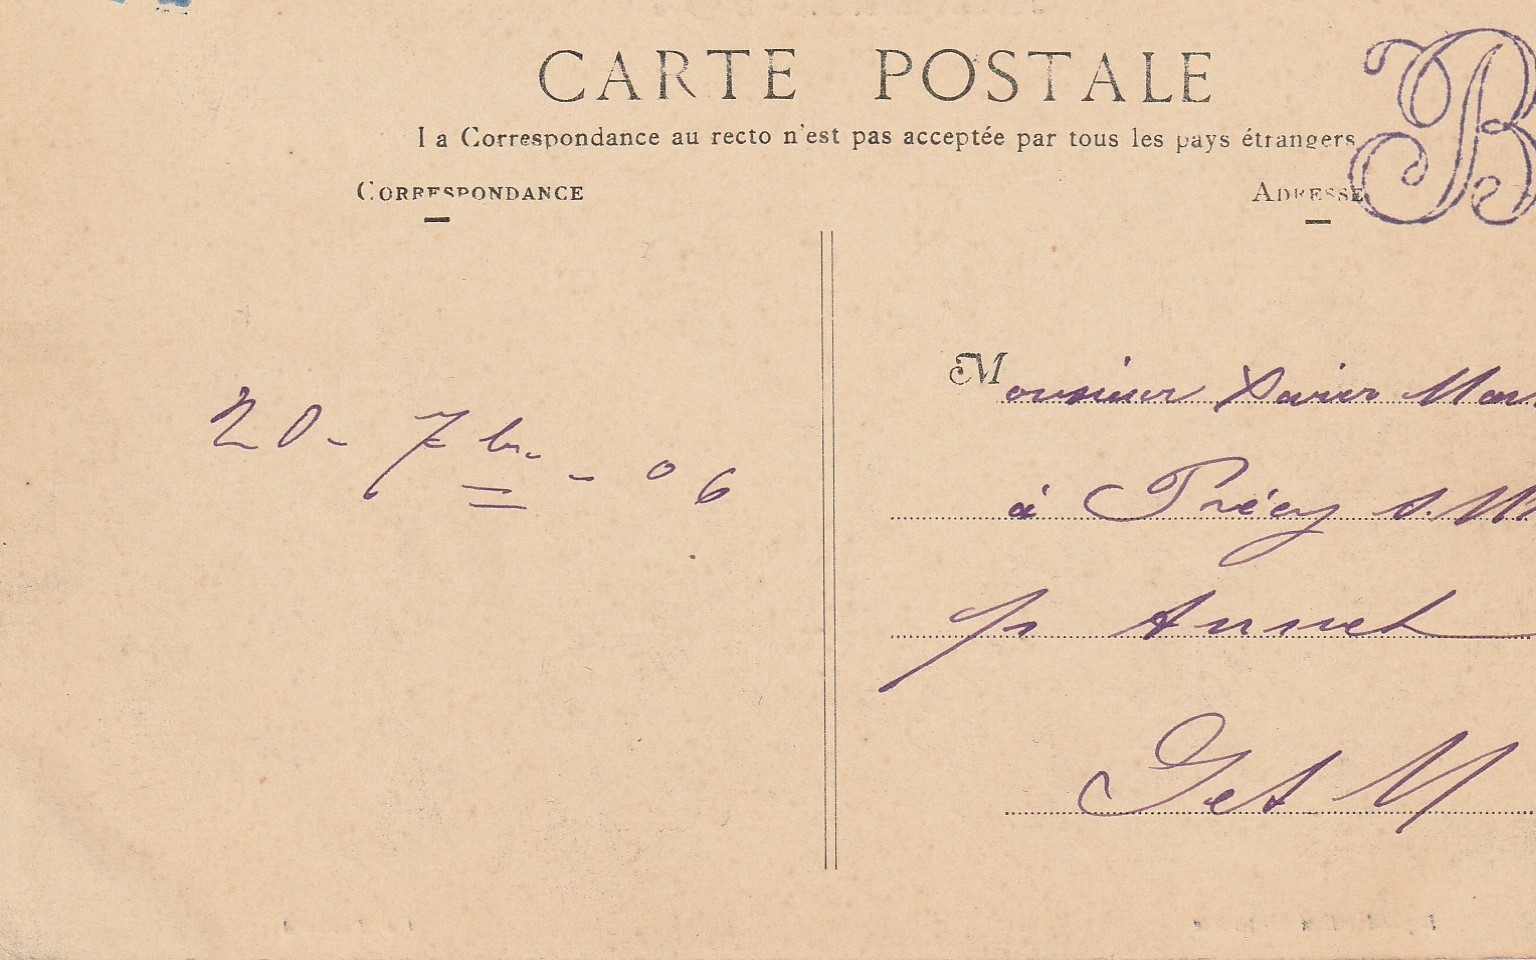 CARTE POSTALE
La Correspondance au recto n'est pas acceptée par tous les pays étrangers
CORRESPONDANCE
ADRESSE
B
20 - 7bre - 06
Monsieur Xavier
à Précy s. M
p Annet
S et M